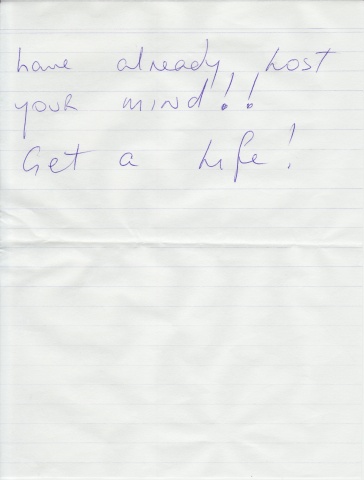 have already Lost
your mind!!
Get a Life!